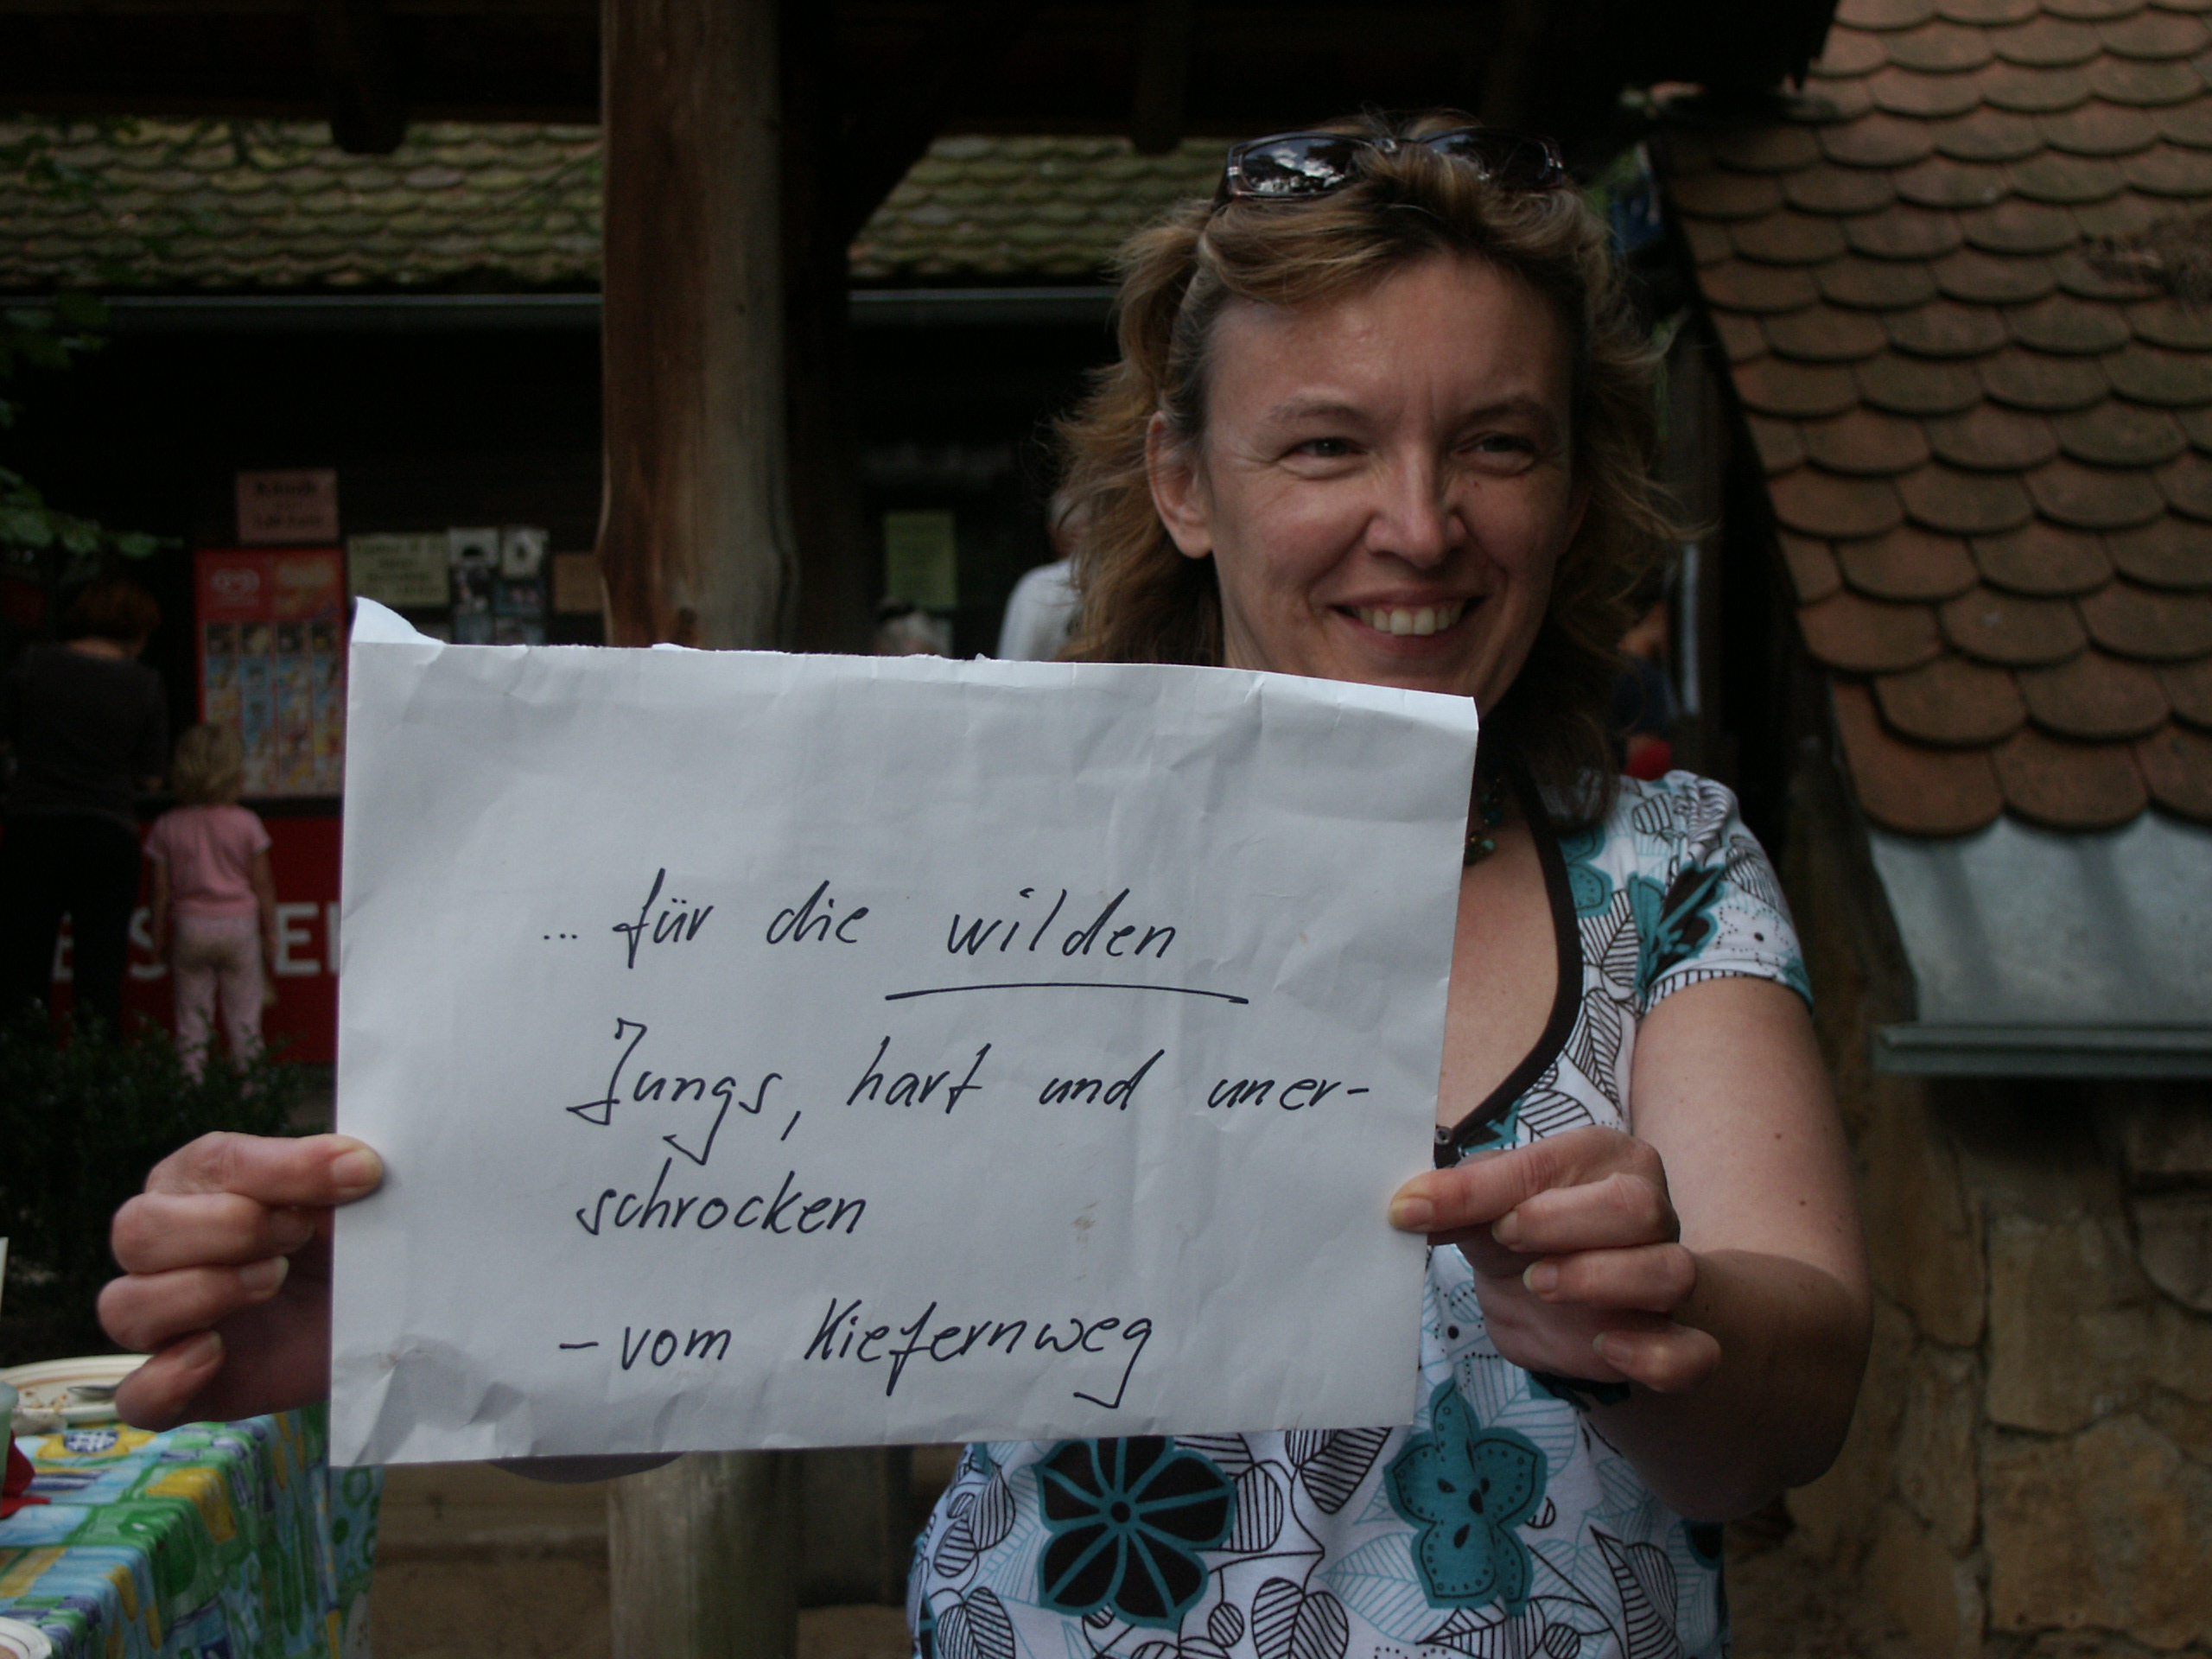 ... für die wilden
Jungs, hart und uner-
schrocken
- vom Kiefernweg